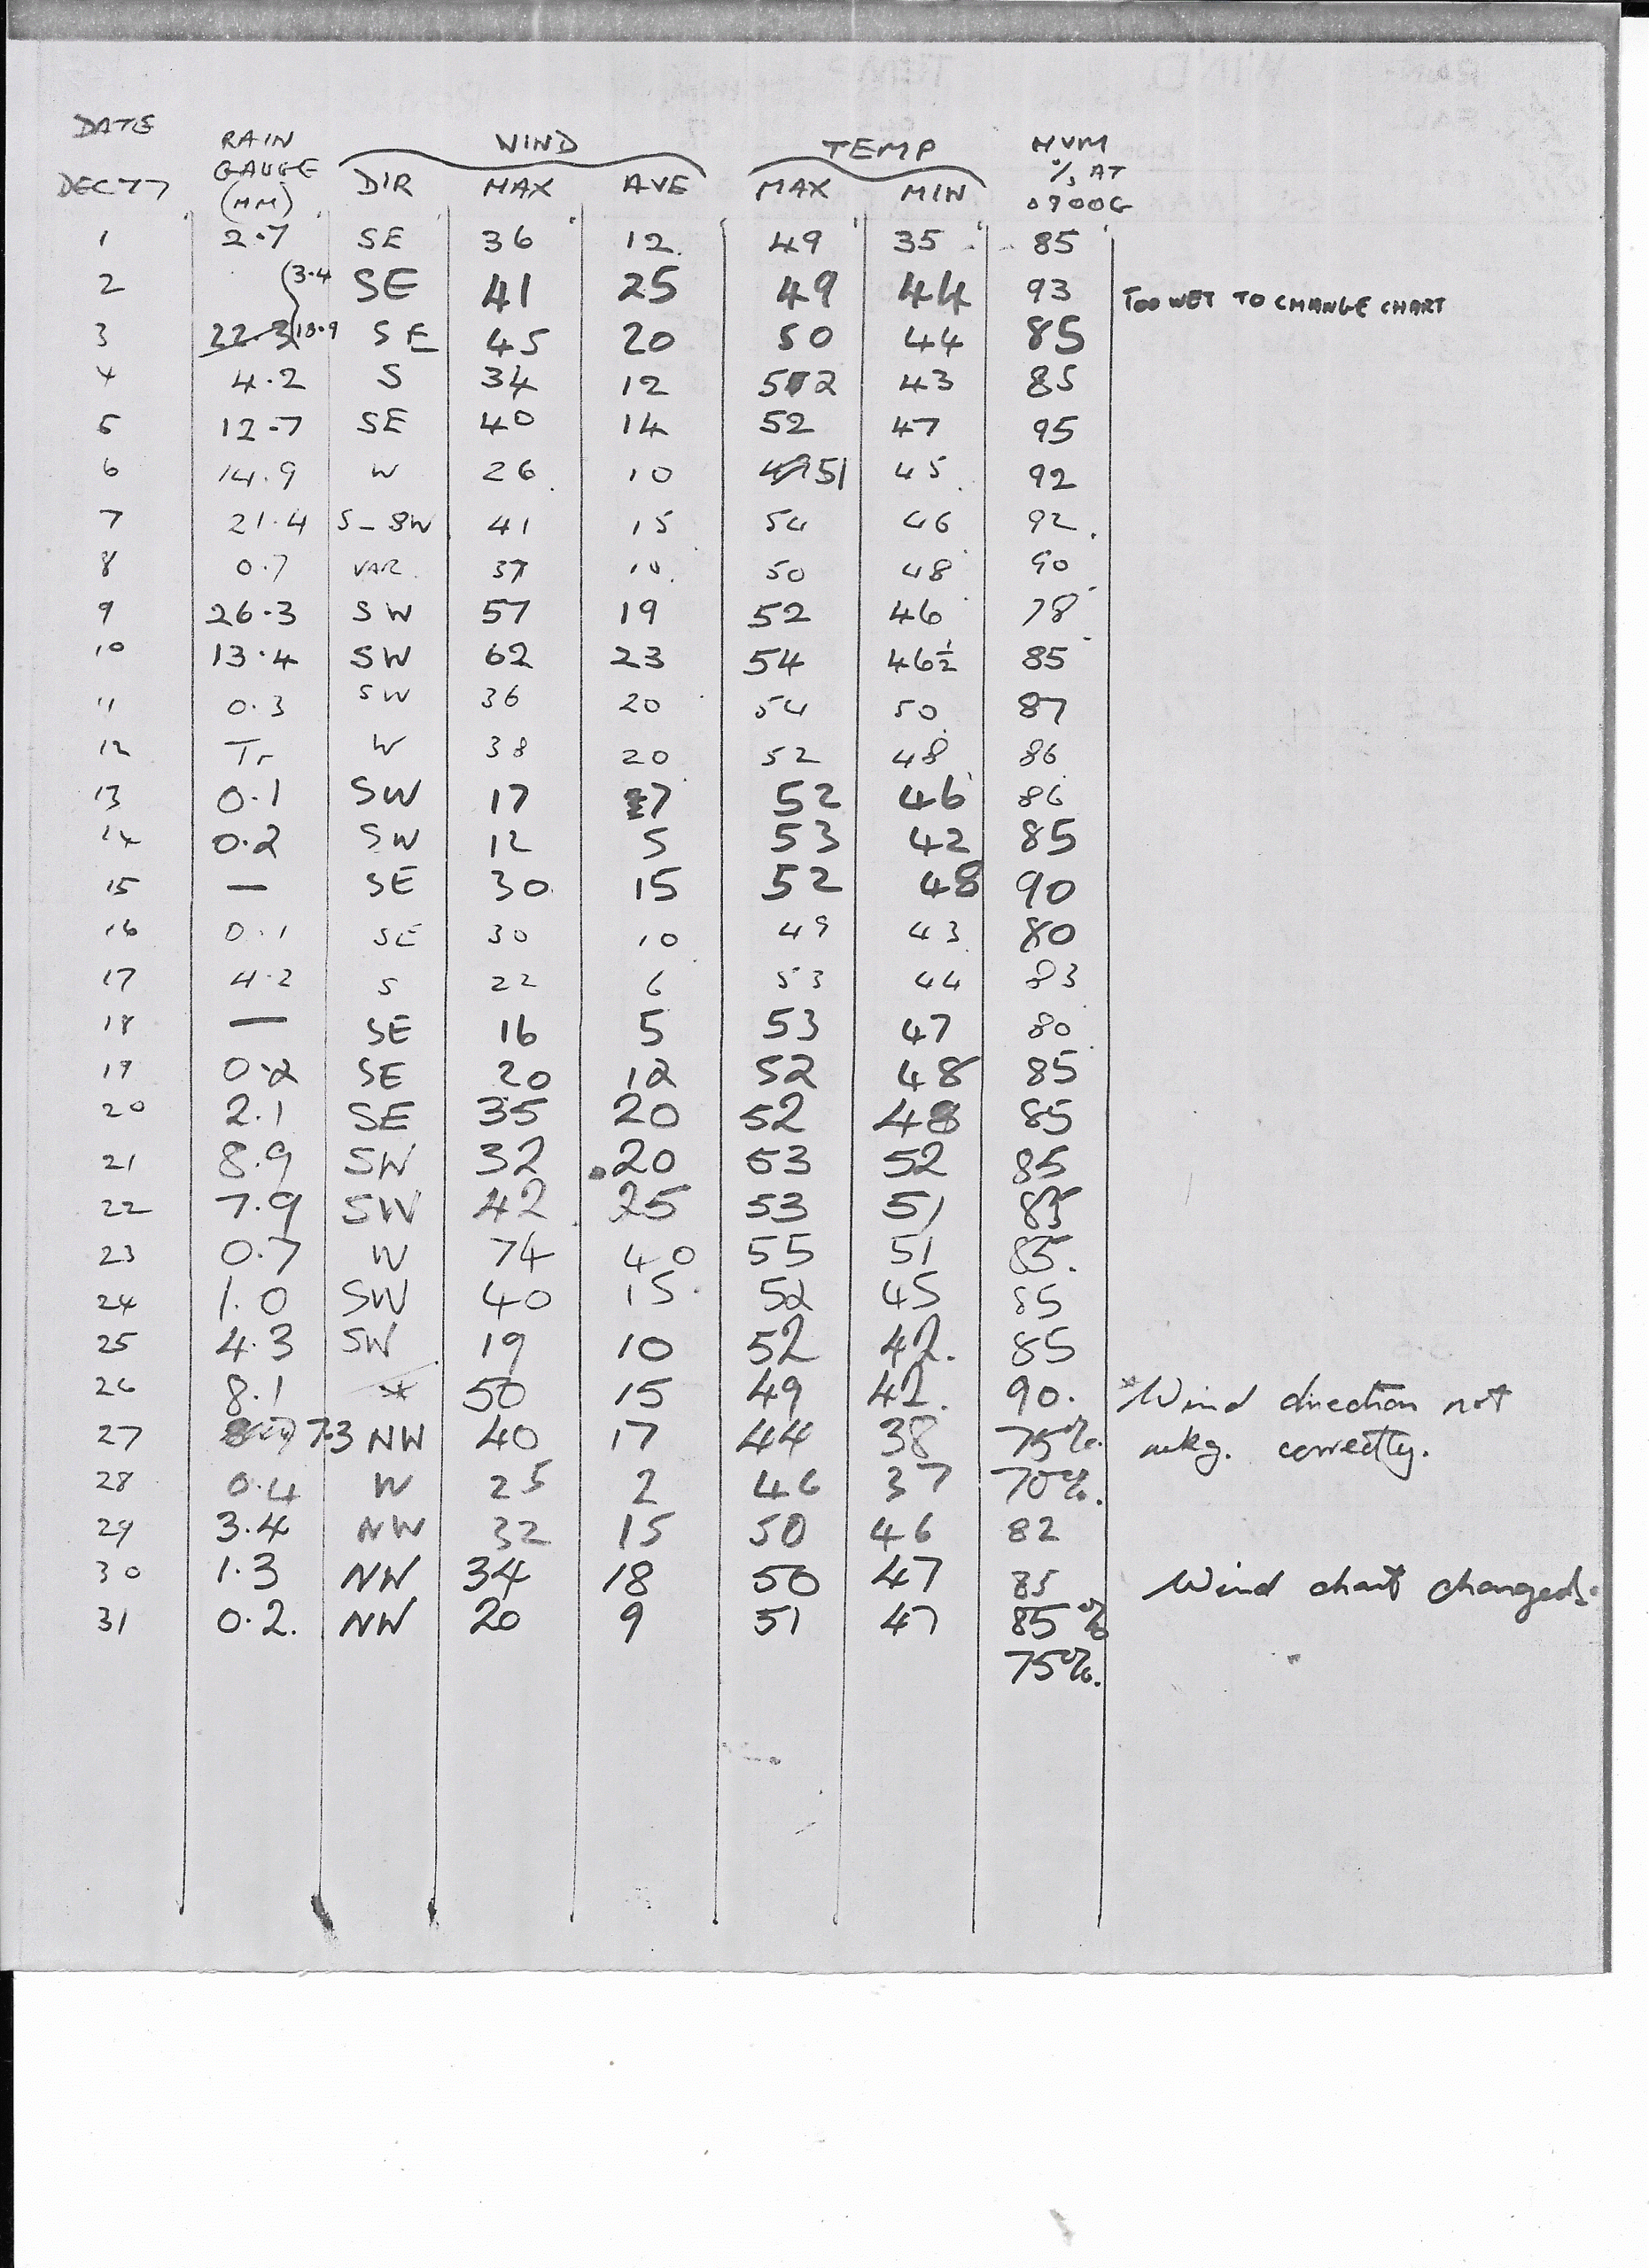 DATE RAIN WIND TEMP HUM
DEC 77 GAUGE DIR MAX AVE MAX MIN % AT
(MM) 0900G
1 2.7 SE 36 12 49 35 85
2 3.4 SE 41 25 49 44 93 TOO WET TO CHANGE CHART
3 22.3 18.9 SE 45 20 50 44 85
4 4.2 S 34 12 52 43 85
5 12.7 SE 40 14 52 47 95
6 14.9 W 26 10 49 51 45 92
7 21.4 S-SW 41 15 54 46 92
8 0.7 VAR 37 10 50 48 90
9 26.3 SW 57 19 52 46 78
10 13.4 SW 62 23 54 46½ 85
11 0.3 SW 36 20 54 50 87
12 Tr W 38 20 52 48 86
13 0.1 SW 17 7 52 46 86
14 0.2 SW 12 5 53 42 85
15 — SE 30 15 52 48 90
16 0.1 SE 30 10 49 43 80
17 4.2 S 22 6 53 44 83
18 — SE 16 5 53 47 80
19 0.2 SE 20 12 52 48 85
20 2.1 SE 35 20 52 48 85
21 8.9 SW 32 20 53 52 85
22 7.9 SW 42 25 53 51
23 0.7 W 74 40 55 51 85.
24 1.0 SW 40 15 52 45 85
25 4.3 SW 19 10 52 42. 85
26 8.1 * 50 15 49 42. 90. *Wind direction not
27 7.3 NW 40 17 44 38 75%. wkg. correctly.
28 0.4 W 25 2 46 37 70%.
29 3.4 NW 32 15 50 46 82
30 1.3 NW 34 18 50 47 85 Wind chart changed.
31 0.2. NW 20 9 51 47 85%
75%.